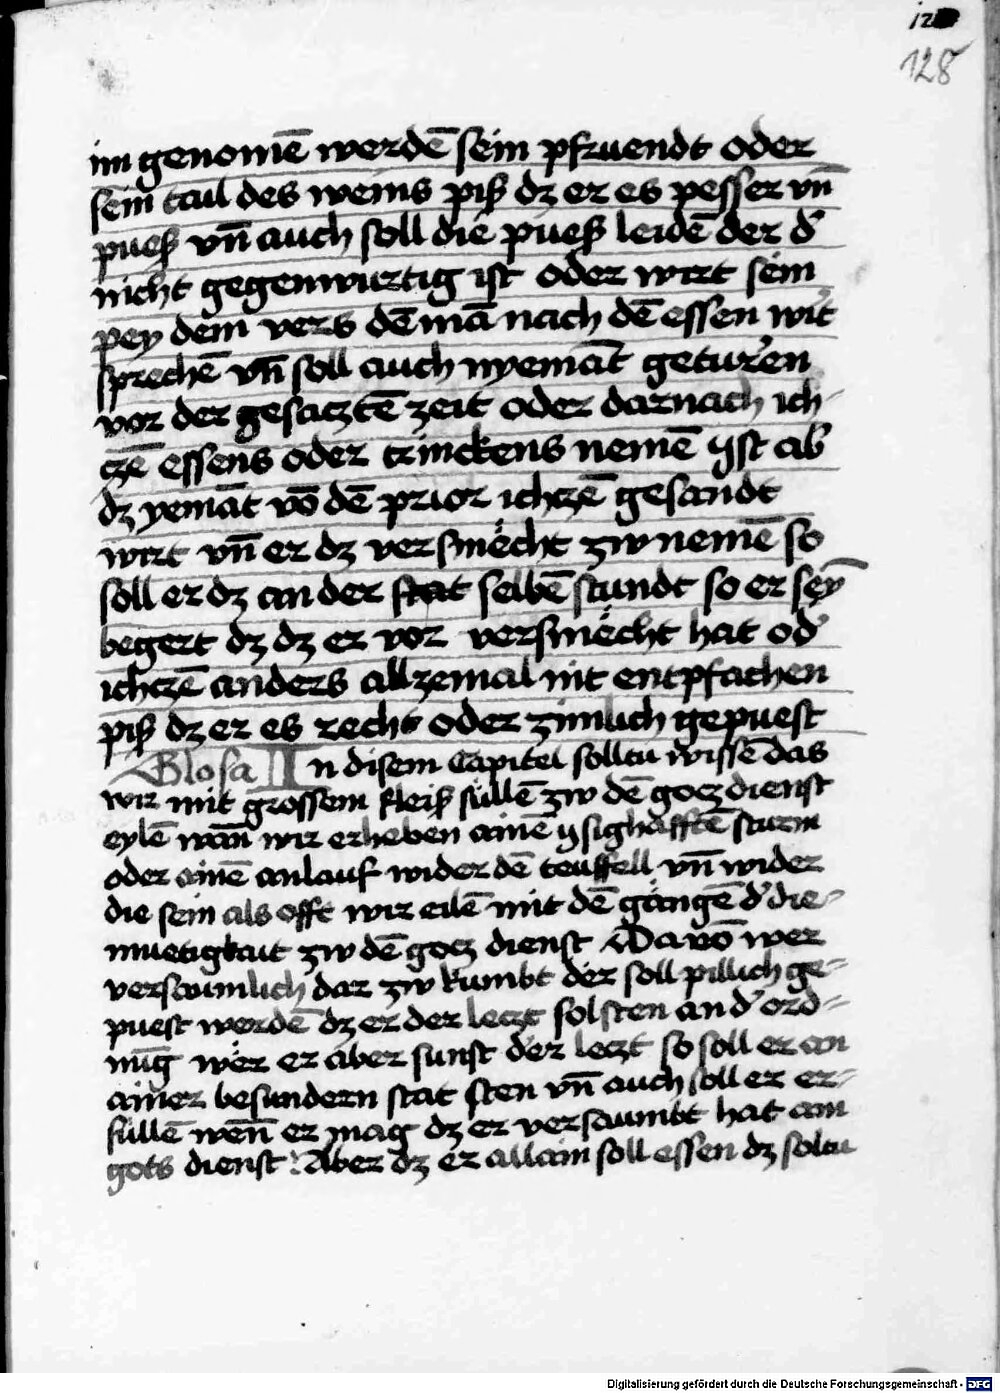 128
im genomē werdē sein pfruendt oder
sein tail des weins piſz dz er es pesser vn̄
pueſz vn̄ auch soll die pueſz leidē der d'
nicht gegenwurtig ist oder wirt sein
pey dem vers dē mā nach dē essen wirt
sprechē vn̄ soll auch nyemāt geturren
vor der gesatztē zeit oder darnach ich-
tzē essens oder trinckens nemē yst ab'
dz yemāt vō dē prior ichtzē gesandt
wirt vn̄ er dz versmecht zw nemē so
soll er dz an der stat selbē stundt so er seȳ
begert dz dz er vor versmecht hat od'
ichtzē anders allzemal nit entpfachen
piſz dz er es recht oder zimlich gepuest
Glosa In disem Capitel solltu wissē das
wir mit grossem fleiſz süllē zw dē gotz dienst
eylē wān wir erheben ainē ysighafftē sturm
oder ainē anlauf wider dē teuffell vn̄ wider
die sein als offt wir eilē mit dē gāngē d' die-
muetigkait zw dē gotz dienst Davō wer
versaumlich dar zw kumbt der soll pillich ge-
puest werdē dz er der letzt sol sten an d' ord-
nūg wer er aber sunst der letzt so soll er an
ainer besundern stat sten vn̄ auch soll er er-
füllē wēn er mag dz er versaumbt hat am
gots dienst Aber dz er allain soll essen dz soltu
Digitalisierung gefördert durch die Deutsche Forschungsgemeinschaft - DFG